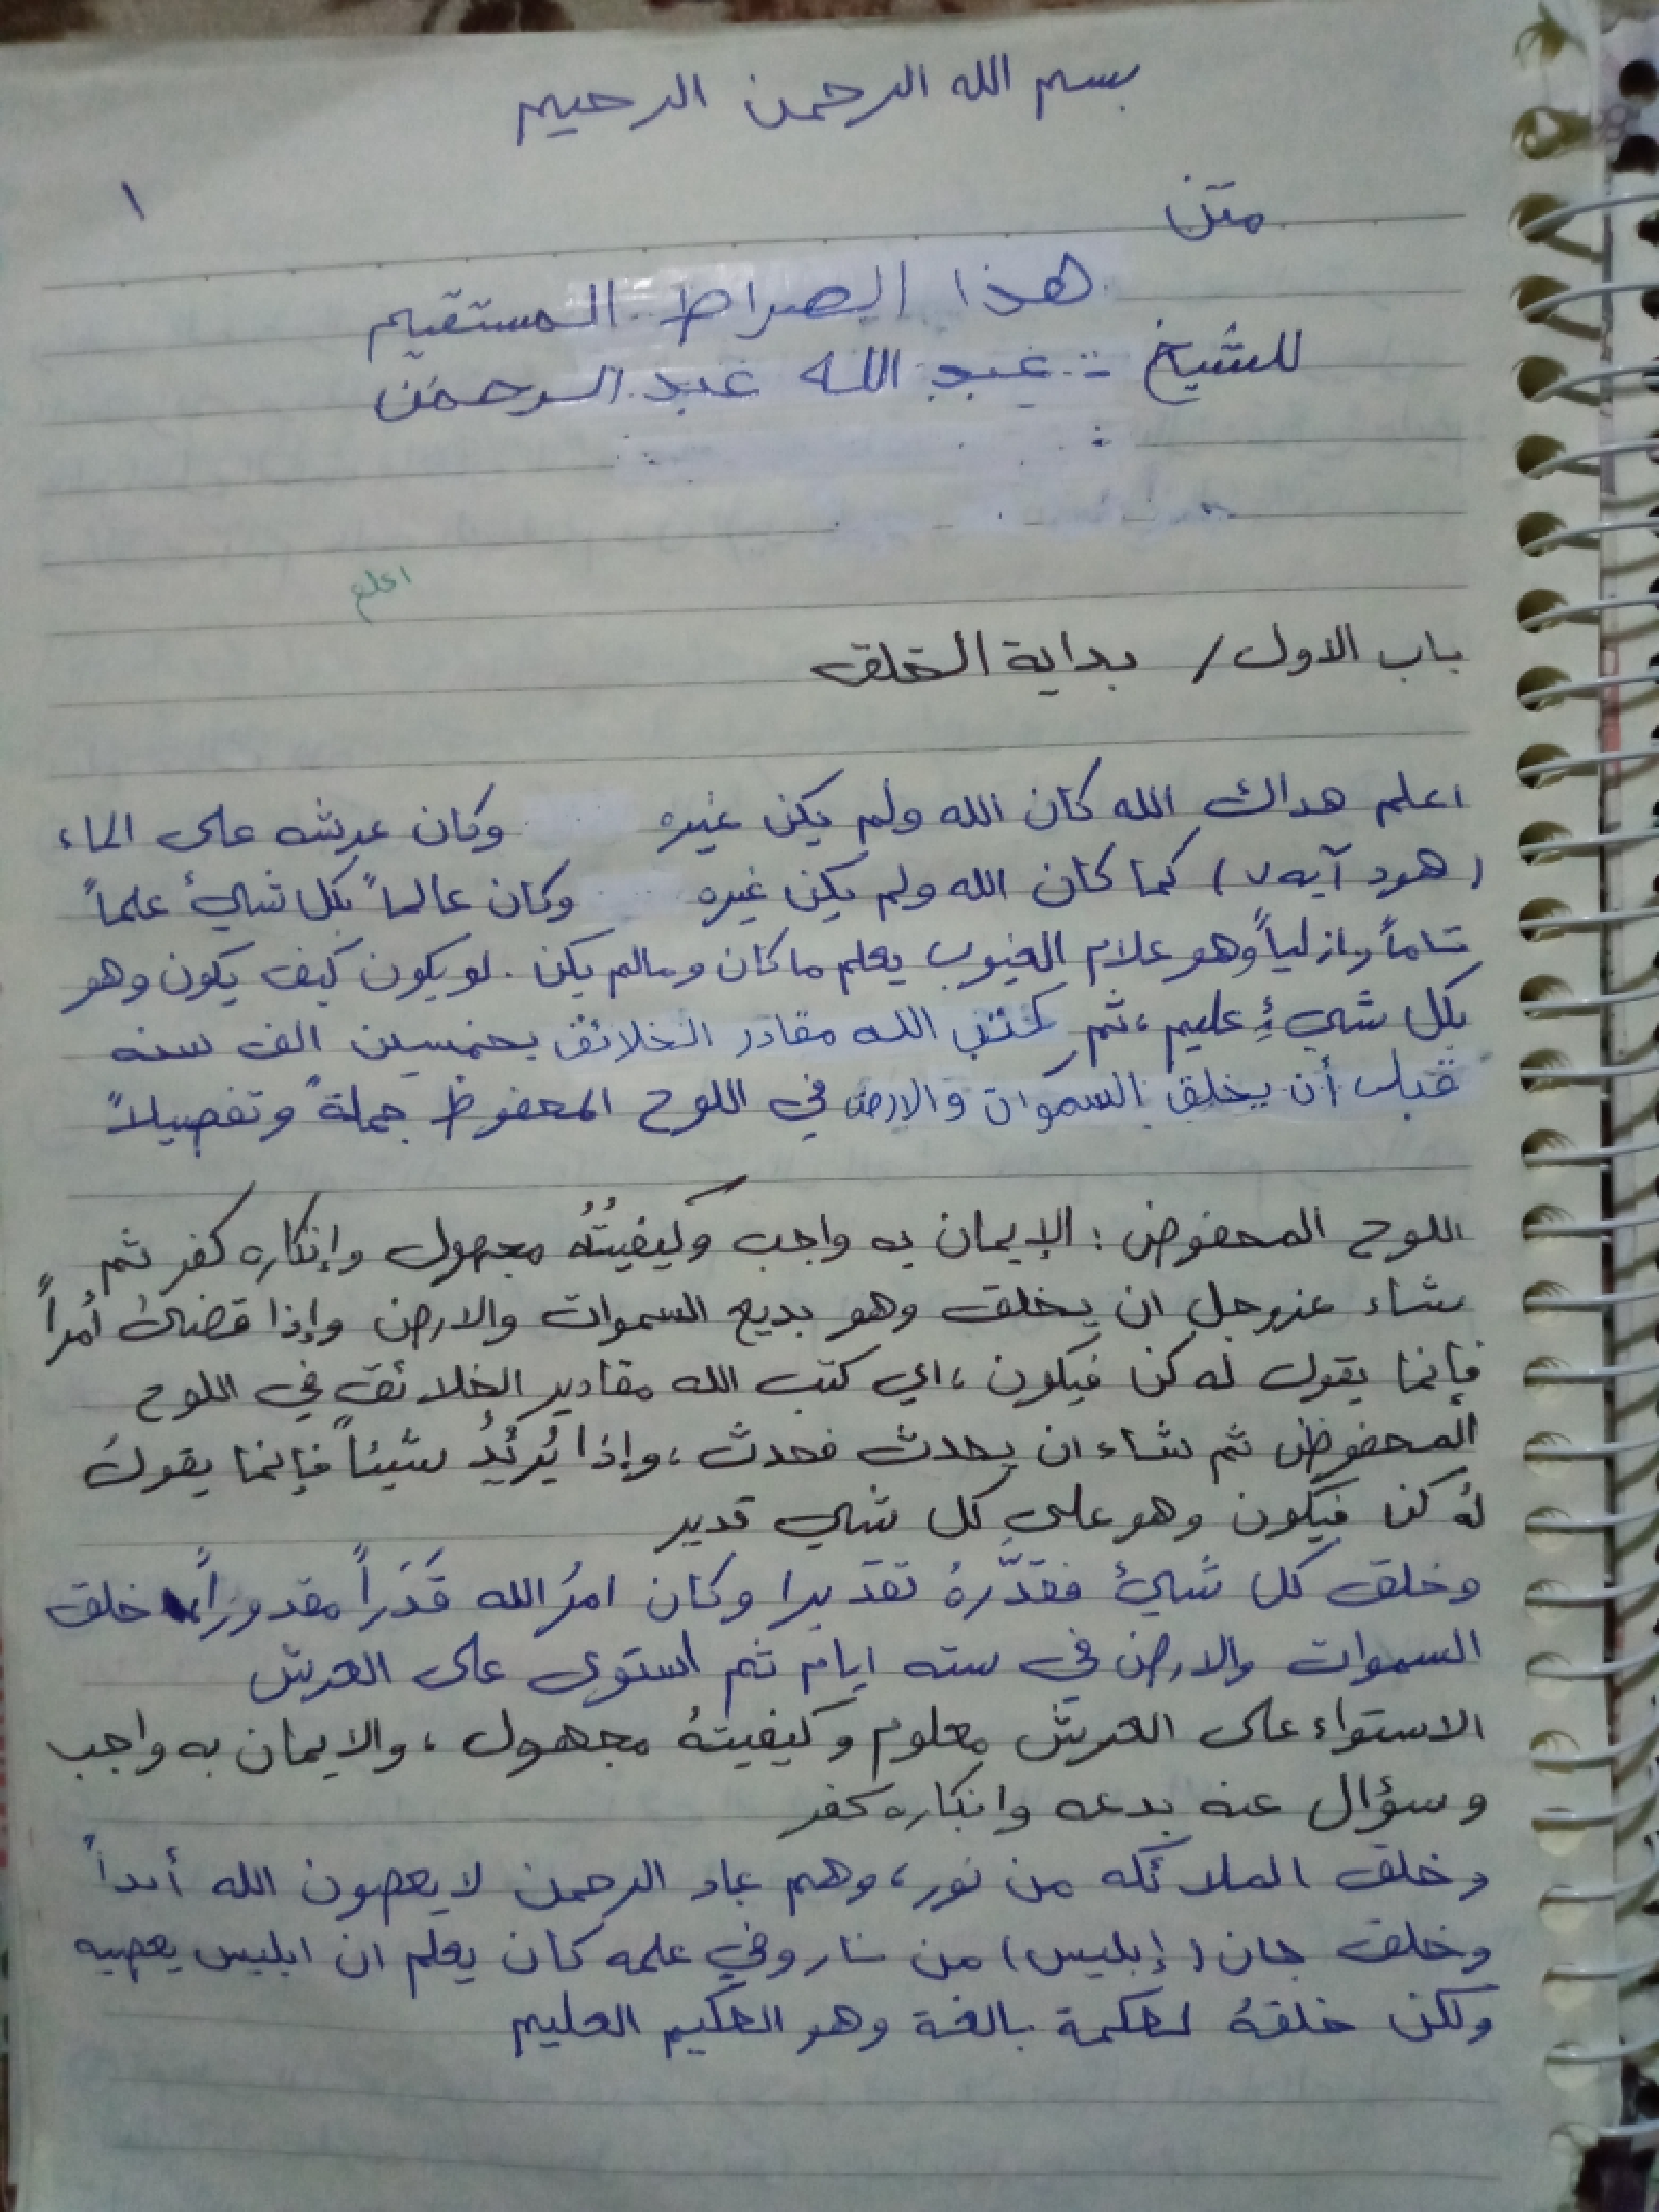 بسم الله الرحمن الرحيم
١
متن
هذا الصراط المستقيم
للشيخ :- عبد الله عبد الرحمن
اعلم
باب الاول / بداية الخلق
اعلم هداك الله كان الله ولم يكن غيره وكان عرشه على الماء
(هود آيه ٧) كما كان الله ولم يكن غيره وكان عالماً بكل شيئ علماً
تاماً وازلياً وهو علام الغيوب يعلم ما كان ومالم يكن . لو يكون كيف يكون وهو
بكل شيئٍ عليم ، ثم كتب الله مقادر الخلائق بخمسين الف سنه
قبل أن يخلق السموات والارض في اللوح المحفوظ جملةً وتفصيلاً
اللوح المحفوض : الإيمان به واجب وكيفيتُهُ مجهول وإنكاره كفر ثم
شاء عزوجل ان يخلق وهو بديع السموات والارض وإذا قضىٰ أمراً
فإنما يقول له كن فيكون ، اي كتب الله مقادير الخلائق في اللوح
المحفوظ ثم شاء ان يحدث فحدث ، وإذا يُرئيدُ شيئاً فإنما يقولُ
لهُ كن فيكون وهو على كل شيي قدير
وخلق كل شيئ فقدّرهُ تقديرا وكان امرُ الله قَدَراً مقدوراً خلق
السموات والارض في سته ايام ثم استوى على العرش
الاستواء على العرش معلوم وكيفيتهُ مجهول ، والايمان به واجب
وسؤال عنه بدعه وانكاره كفر
وخلق الملائكه من نور ، وهم عباد الرحمن لا يعصون الله أبداً
وخلق جان (إبليس) من نار وفي علمه كان يعلم ان ابليس يعصيه
ولكن خلقهُ لحكمة بالغة وهو الحكيم العليم